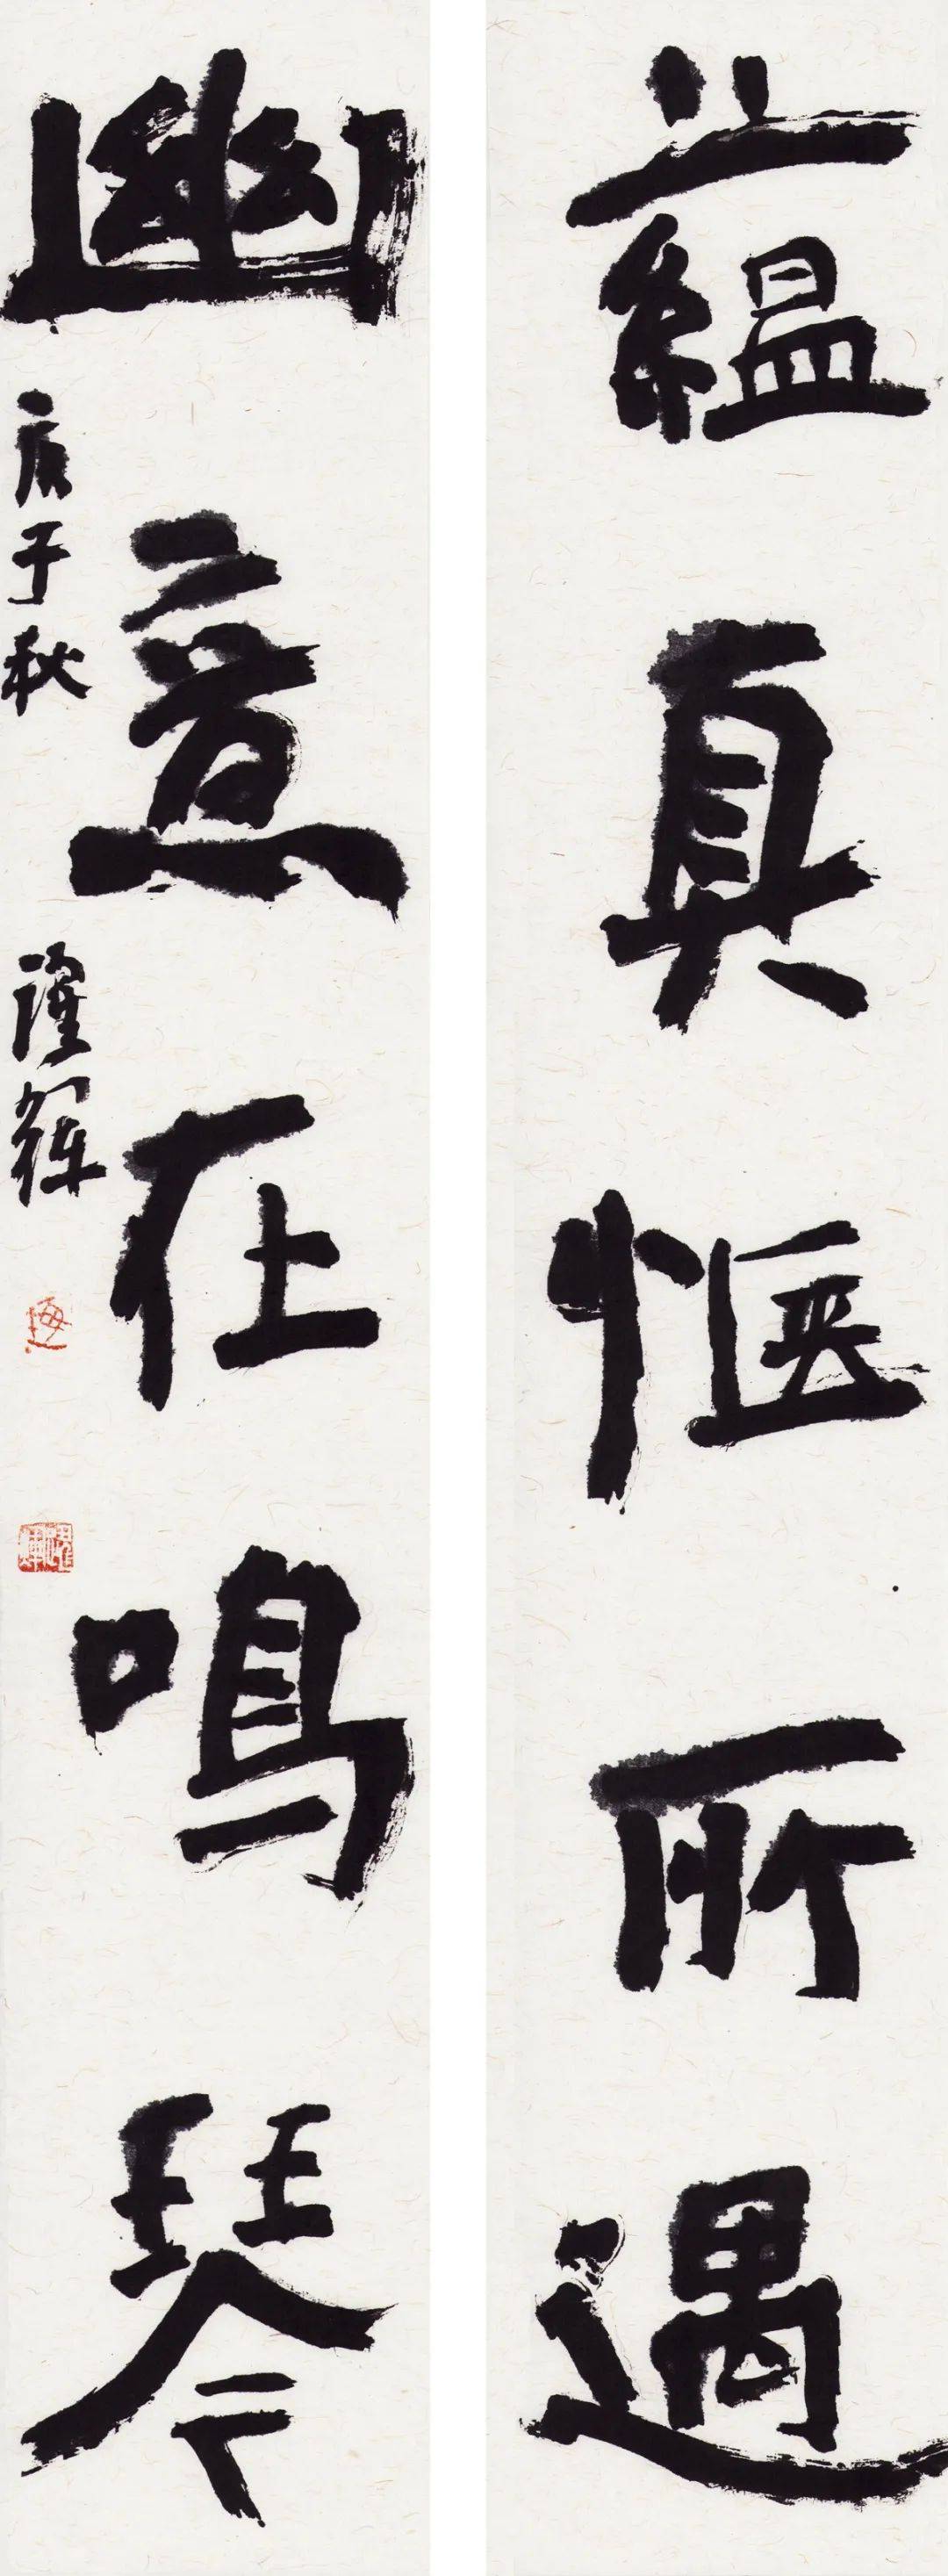 蘊真愜所遇
幽意在鳴琴
庚子秋